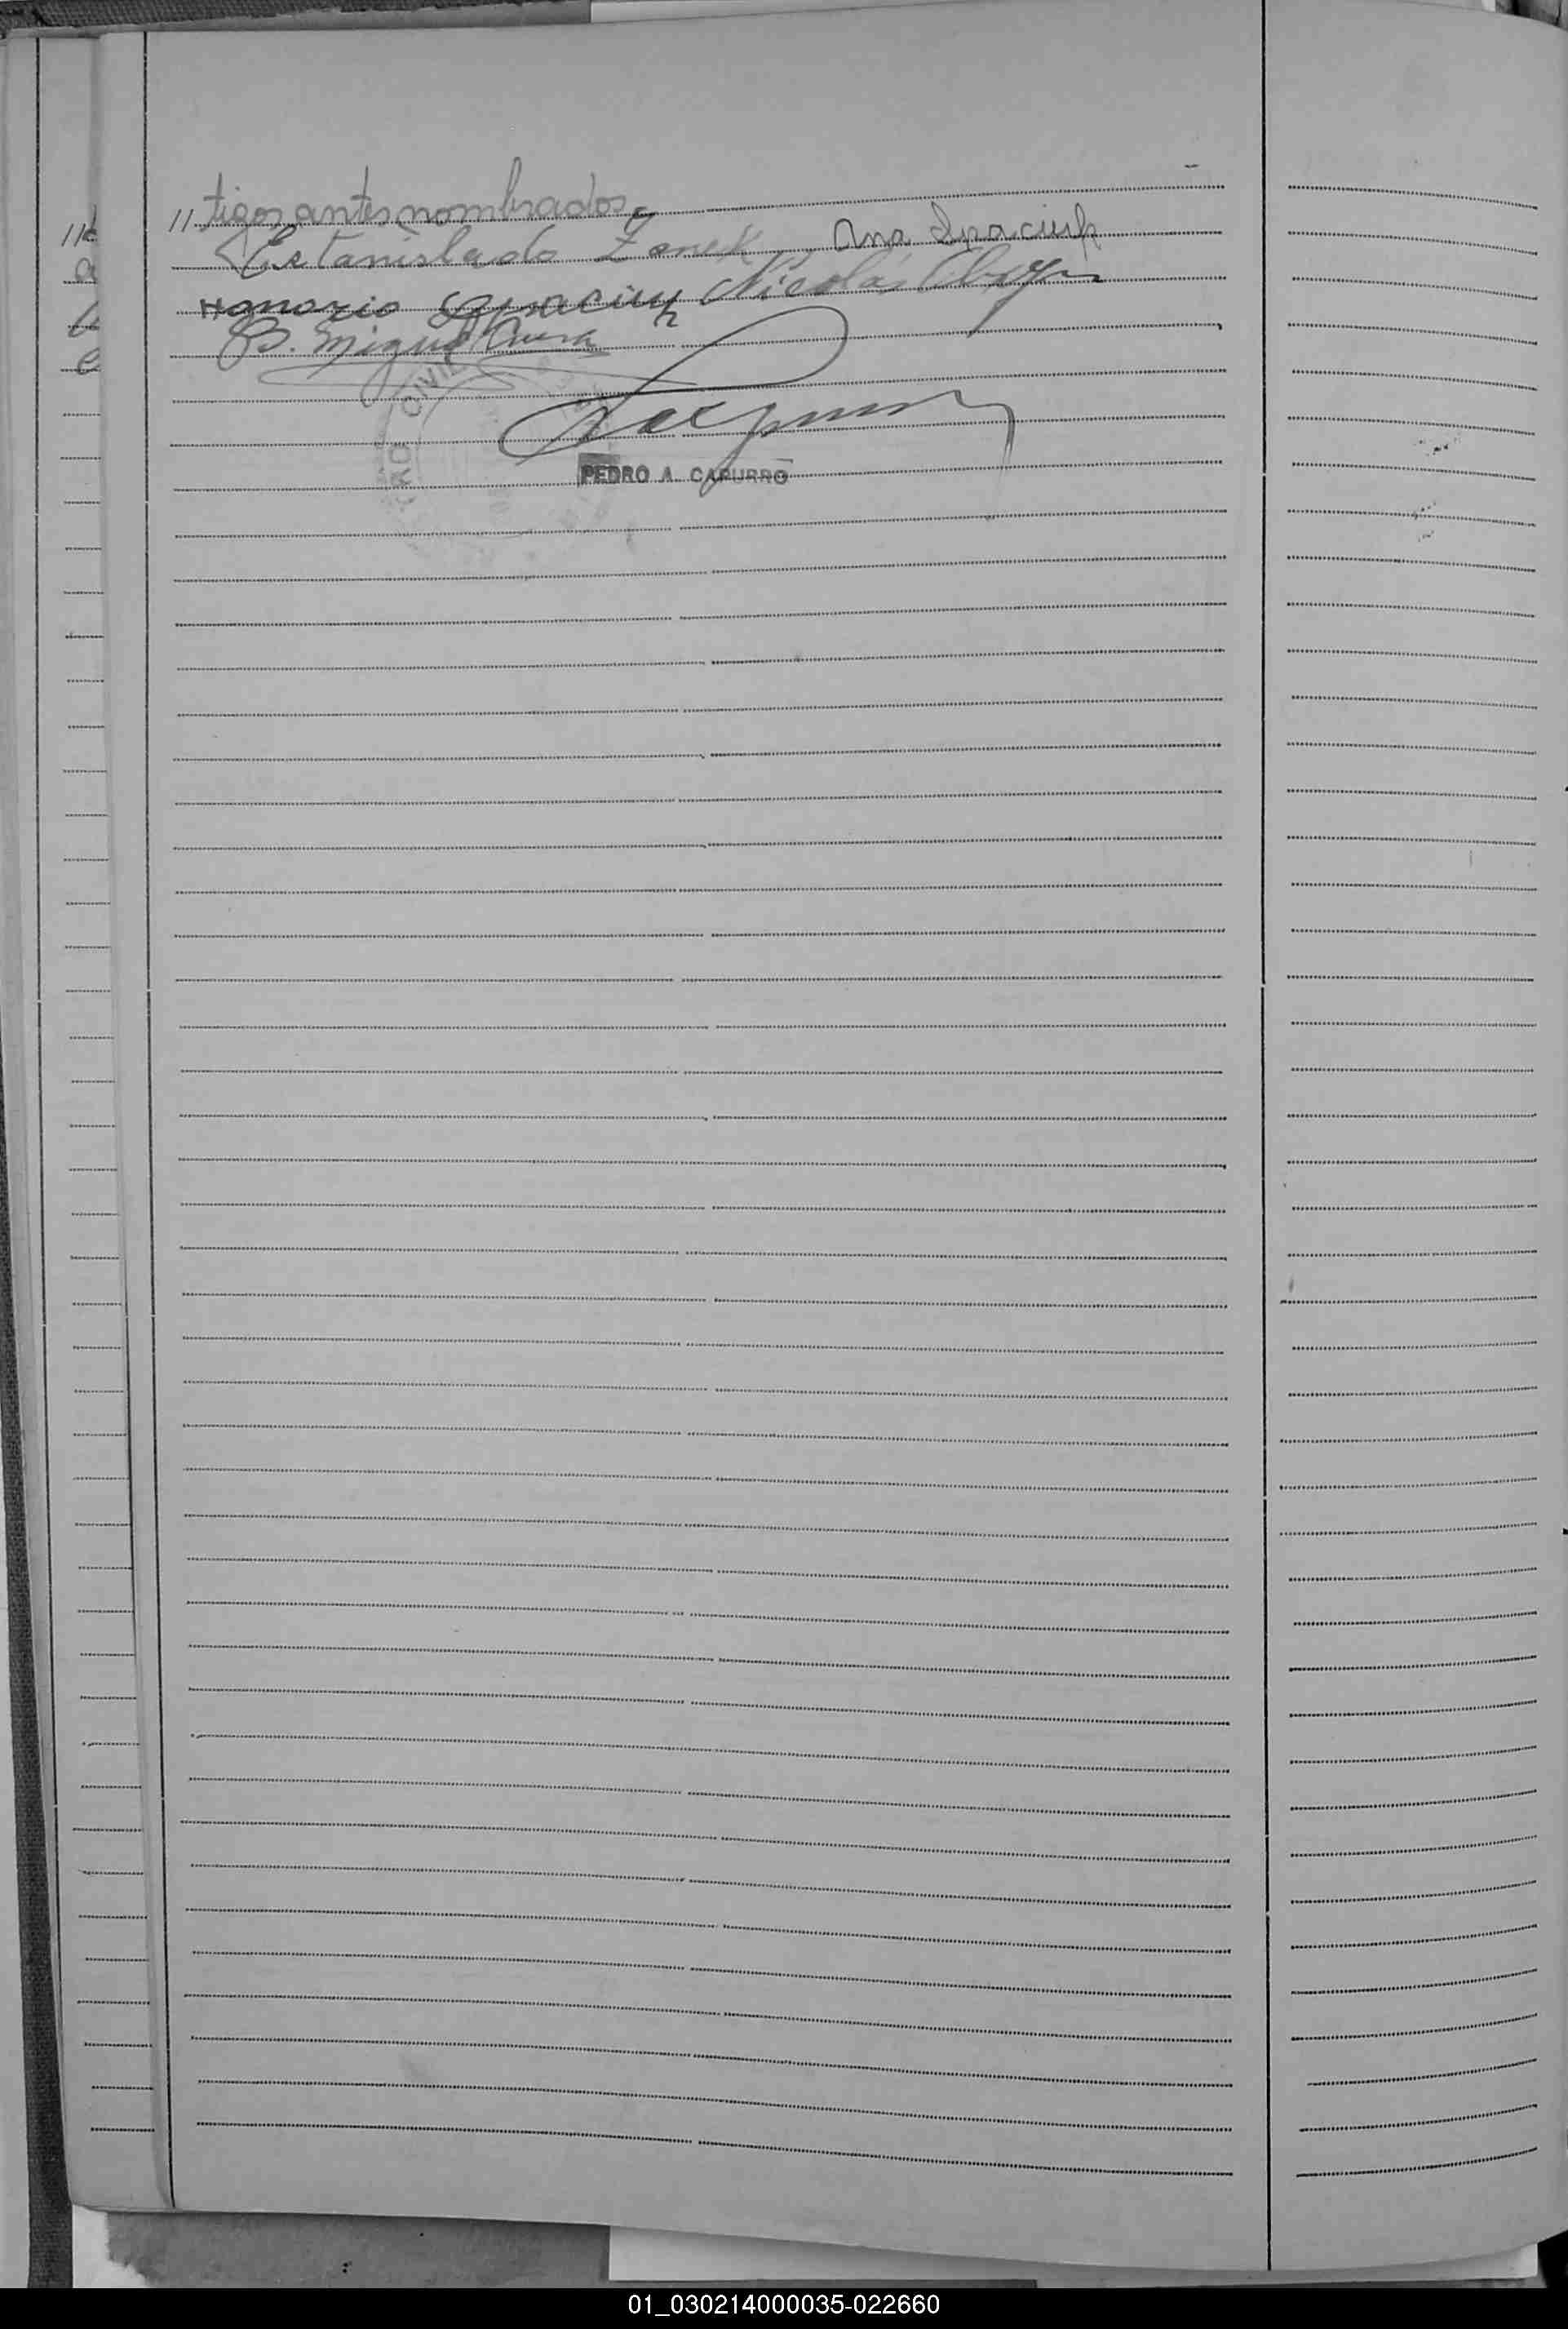 // tigos antes nombrados.
Estanislado Zonek Ana Ignaciuk
Honorio Ignaciuk Nicolás
B. Miguel
CIVIL
PEDRO A. CAPURRO
//
01_030214000035-022660